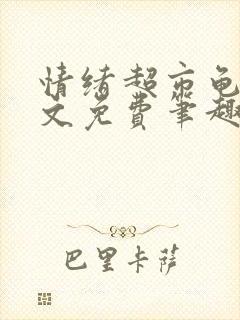 情绪超市龟
文免费笔趣
巴里卡萨